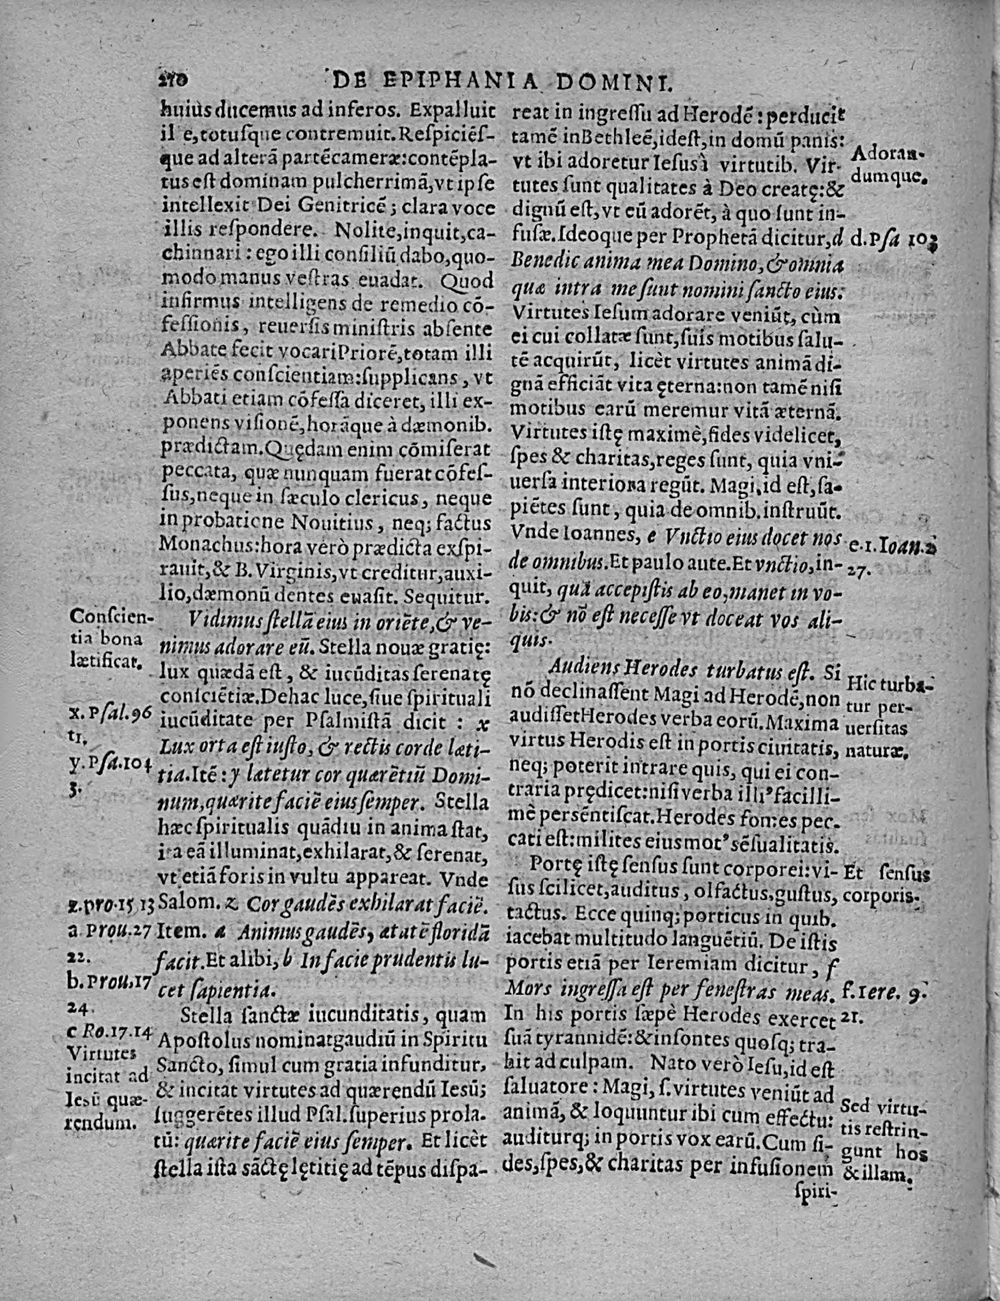 270
DE EPIPHANIA DOMINI.
huius ducemus ad inferos. Expalluit
ille, totusque contremuit. Respiciēs-
que ad alterā partē cameræ: contēpla-
tus est dominam pulcherrimā, vt ipse
intellexit Dei Genitricē; clara voce
illis respondere. Nolite, inquit, ca-
chinnari: ego illi consiliū dabo, quo-
modo manus vestras euadat. Quod
infirmus intelligens de remedio cō-
fessionis, reuersis ministris absente
Abbate fecit vocari Priorē, totam illi
aperiēs conscientiam: supplicans, vt
Abbati etiam cōfessa diceret, illi ex-
ponens visionē, horāque à dæmonib.
prædictam. Quędam enim cōmiserat
peccata, quæ nunquam fuerat cōfes-
sus, neque in sæculo clericus, neque
in probatione Nouitius, neq; factus
Monachus: hora verò prædicta exspi-
rauit, & B. Virginis, vt creditur, auxi-
lio, dæmonū dentes euasit. Sequitur.
Vidimus stellā eius in oriēte, & ve-
nimus adorare eū. Stella nouæ gratię:
lux quædā est, & iucūditas serenatę
consciētiæ. De hac luce, siue spirituali
iucūditate per Psalmistā dicit: x
Lux orta est iusto, & rectis corde læti-
tia. Itē: y lætetur cor quærētiū Domi-
num, quærite faciē eius semper. Stella
hæc spiritualis quādiu in anima stat,
ita eā illuminat, exhilarat, & serenat,
vt etiā foris in vultu appareat. Vnde
Salom. z Cor gaudēs exhilarat faciē.
Item. a Animus gaudēs, ætatē floridā
facit. Et alibi, b In facie prudentis lu-
cet sapientia.
Stella sanctæ iucunditatis, quam
Apostolus nominat gaudiū in Spiritu
Sancto, simul cum gratia infunditur,
& incitat virtutes ad quærendū Iesū;
suggerētes illud Psal. superius prola-
tū: quærite faciē eius semper. Et licèt
stella ista sāctę lętitię ad tēpus dispa-
Conscien-
tia bona
lætificat.
x. Psal. 96
11.
y. Psa. 104
3.
z. pro. 15. 13
a Prou. 27
22.
b. Prou. 17
24.
c Ro. 17. 14
Virtutes
incitat ad
Iesū quæ-
rendum.
reat in ingressu ad Herodē: perducit
tamē in Bethleē, id est, in domū panis:
vt ibi adoretur Iesus à virtutib. Vir-
tutes sunt qualitates à Deo creatę: &
dignū est, vt eū adorēt, à quo sunt in-
fusæ. Ideoque per Prophetā dicitur, d
Benedic anima mea Domino, & omnia
quæ intra me sunt nomini sancto eius.
Virtutes Iesum adorare veniūt, cùm
ei cui collatæ sunt, suis motibus salu-
tē acquirūt, licèt virtutes animā di-
gnā efficiāt vita ęterna: non tamē nisi
motibus earū meremur vitā æternā.
Virtutes istę maximè, fides videlicet,
spes & charitas, reges sunt, quia vni-
uersa interiora regūt. Magi, id est, sa-
piētes sunt, quia de omnib. instruūt.
Vnde Ioannes, e Vnctio eius docet nos
de omnibus. Et paulo ante. Et vnctio, in-
quit, quā accepistis ab eo, manet in vo-
bis: & nō est necesse vt doceat vos ali-
quis.
Audiens Herodes turbatus est. Si
nō declinassent Magi ad Herodē, non
audisset Herodes verba eorū. Maxima
virtus Herodis est in portis ciuitatis,
neq; poterit intrare quis, qui ei con-
traria prędicet: nisi verba illi' facilli-
mè persēntiscat. Herodes fomes pec-
cati est: milites eius mot' sēsualitatis.
Portę istę sensus sunt corporei: vi-
sus scilicet, auditus, olfactus, gustus,
tactus. Ecce quinq; porticus in quib.
iacebat multitudo languētiū. De istis
portis etiā per Ieremiam dicitur, f
Mors ingressa est per fenestras meas.
In his portis sæpè Herodes exercet
suā tyrannidē: & insontes quosq; tra-
hit ad culpam. Nato verò Iesu, id est
saluatore: Magi, s. virtutes veniūt ad
animā, & loquuntur ibi cum effectu:
auditurq; in portis vox earū. Cum fi-
des, spes, & charitas per infusionem
spiri-
Adoran-
dumque.
d. Psa 103
e. 1. Ioan. 2
27.
Hic turba-
tur per-
uersitas
naturæ.
Et sensus
corporis.
f. Iere. 9.
21.
Sed virtu-
tis restrin-
gunt hos
& illam.